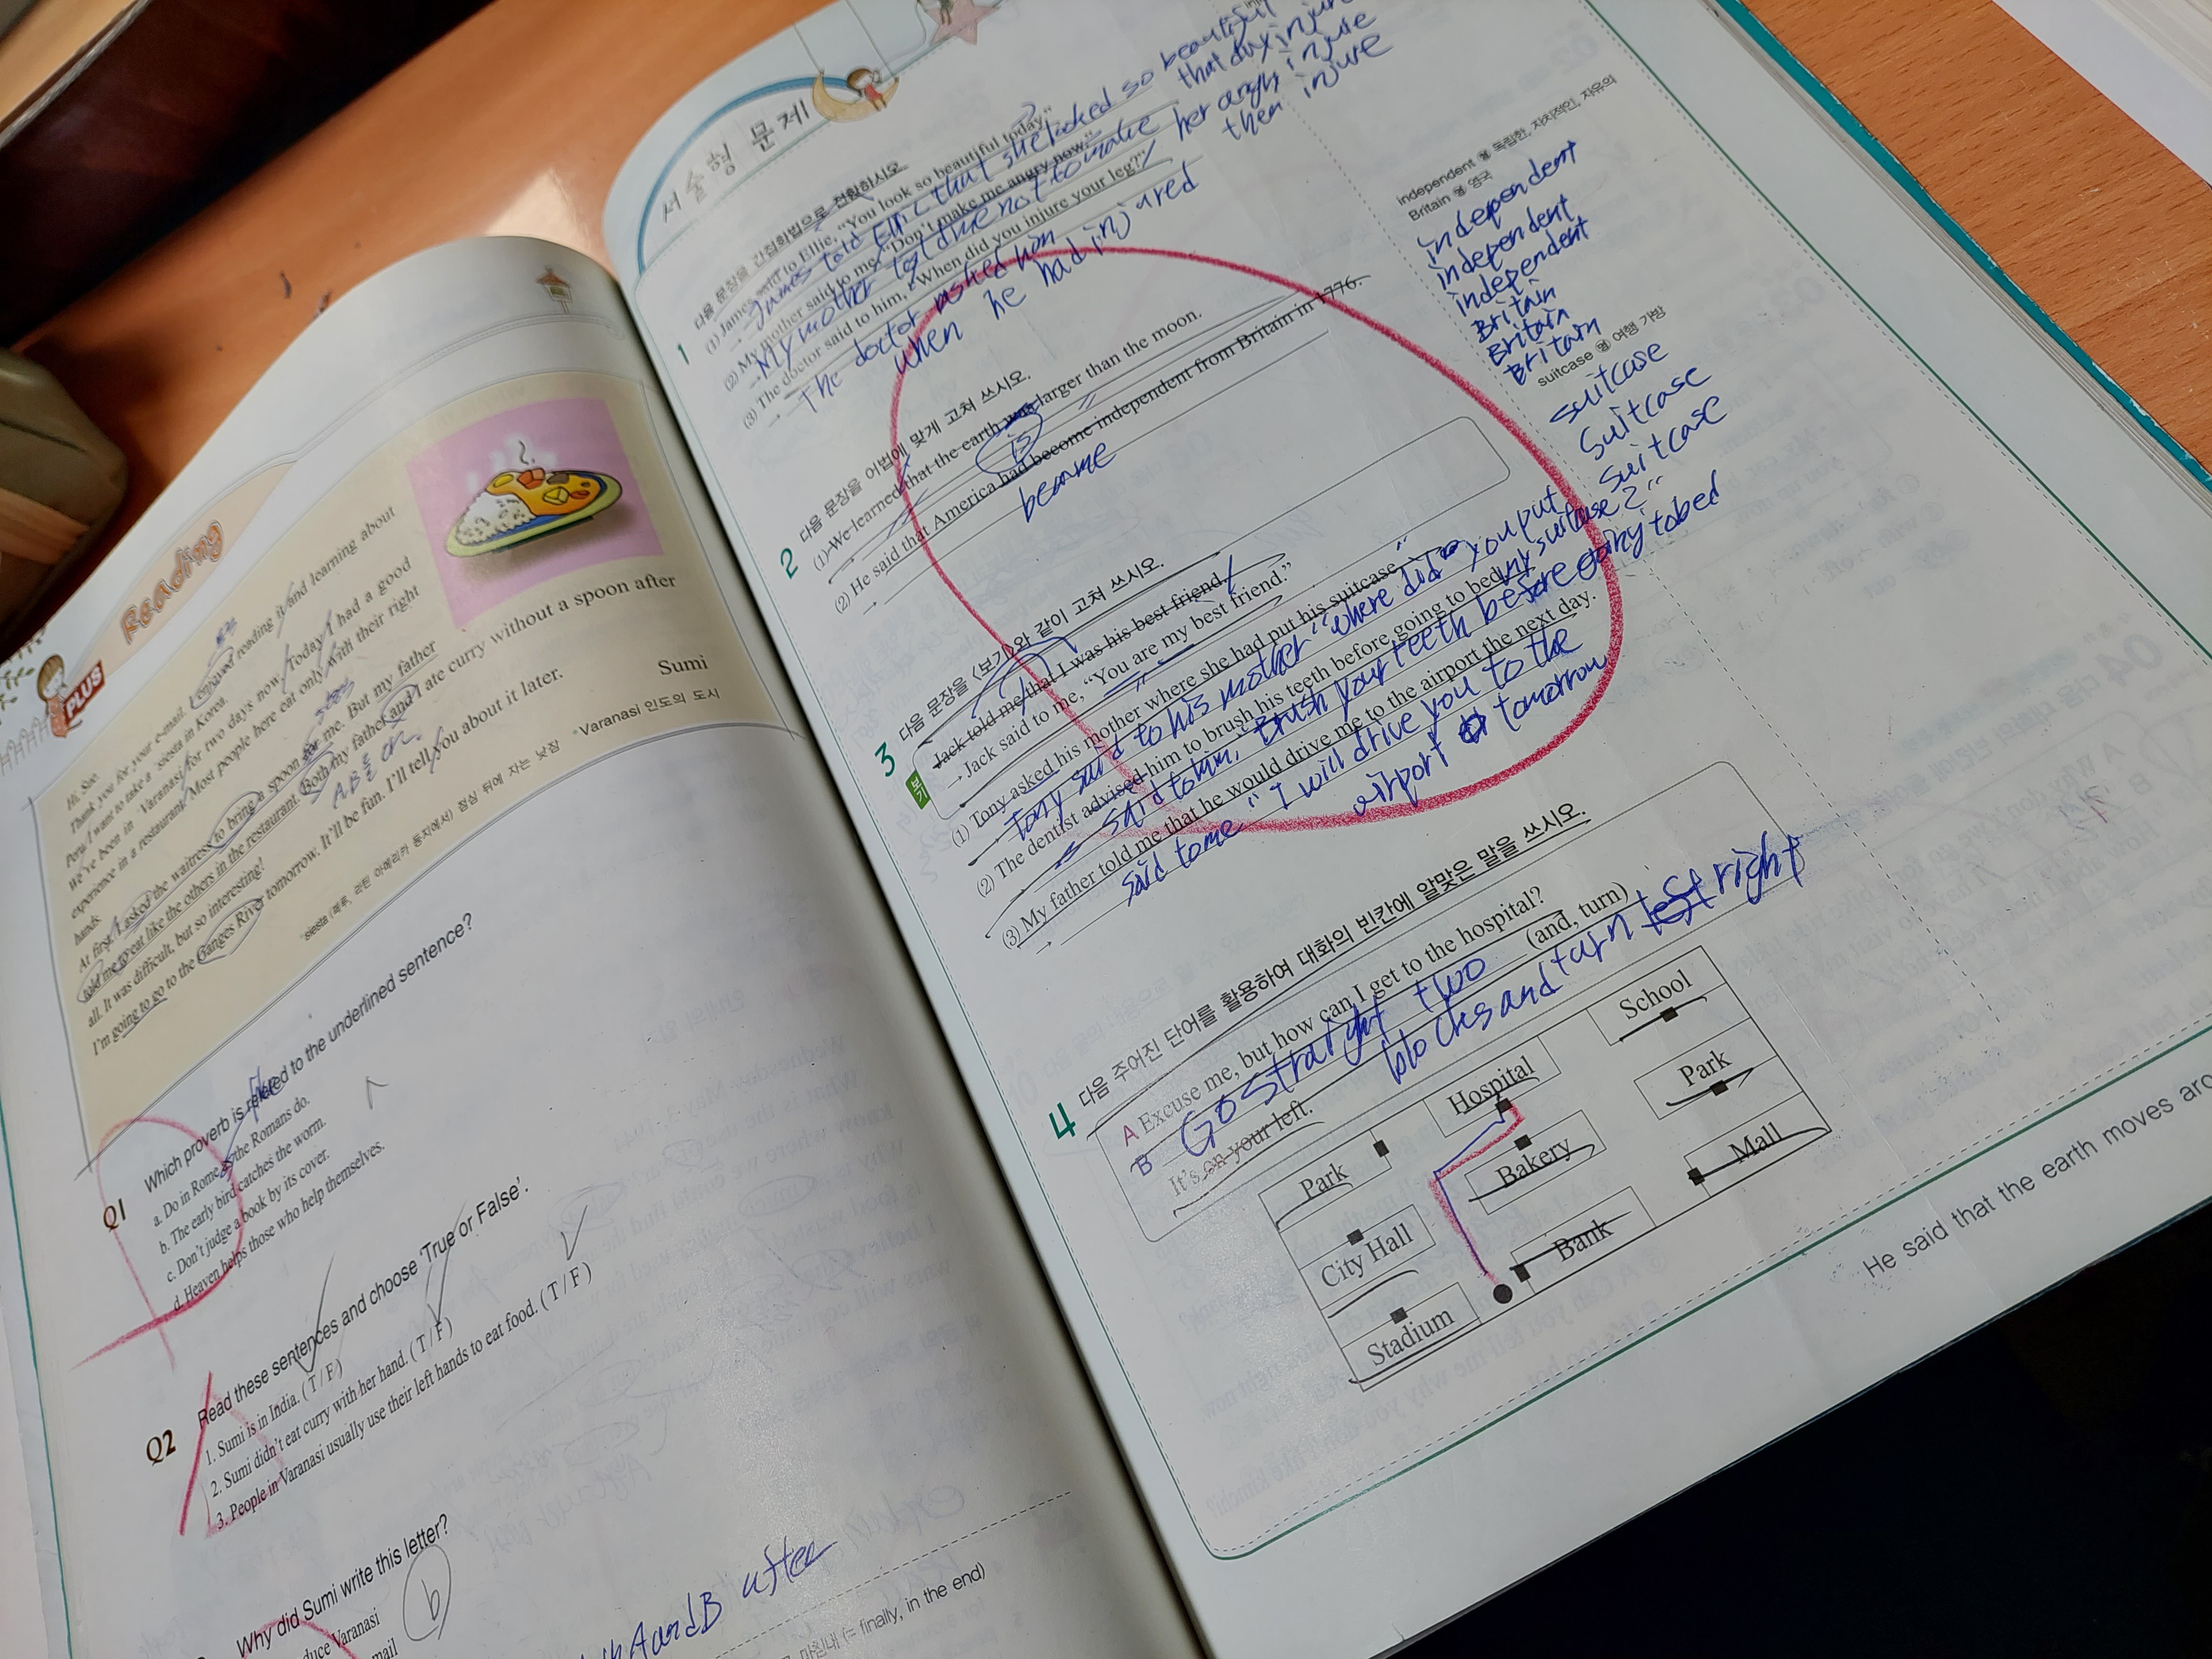 Reading
PLUS
Hi, Sue.
Thank you for your e-mail. I enjoyed reading it and learning about
Peru. I want to take a *siesta in Korea.
We've been in *Varanasi for two days now. Today I had a good
experience in a restaurant. Most people here eat only with their right
hands.
At first, I asked the waitress to bring a spoon for me. But my father
told me to eat like the others in the restaurant. Both my father and I ate curry without a spoon after
all. It was difficult, but so interesting!
I'm going to go to the Ganges River tomorrow. It'll be fun. I'll tell you about it later.
Sumi
A, B 둘 다
*siesta (페루, 라틴 아메리카 등지에서) 점심 뒤에 자는 낮잠 *Varanasi 인도의 도시
Q1
Which proverb is related to the underlined sentence?
a. Do in Rome as the Romans do.
b. The early bird catches the worm.
c. Don't judge a book by its cover.
d. Heaven helps those who help themselves.
Q2
Read these sentences and choose 'True or False'.
1. Sumi is in India. ( T / F )
2. Sumi didn't eat curry with her hand. ( T / F )
3. People in Varanasi usually use their left hands to eat food. ( T / F )
Why did Sumi write this letter?
duce Varanasi
mail
b
A and B after
마침내 (= finally, in the end)
서술형 문제
1 다음 문장을 간접화법으로 전환하시오.
(1) James said to Ellie, "You look so beautiful today."
→ James told Ellie that she looked so beautiful
that day
(2) My mother said to me, "Don't make me angry now."
→ My mother told me not to make her angry
then
(3) The doctor said to him, "When did you injure your leg?"
→ The doctor asked him
when he had injured
injure
injure
injure
2 다음 문장을 어법에 맞게 고쳐 쓰시오.
(1) We learned that the earth was larger than the moon.
is
(2) He said that America had become independent from Britain in 1776.
→ became
3 다음 문장을 <보기>와 같이 고쳐 쓰시오.
보기
Jack told me that I was his best friend.
→ Jack said to me, "You are my best friend."
(1) Tony asked his mother where she had put his suitcase.
→ Tony said to his mother "where did you put
my suitcase?"
(2) The dentist advised him to brush his teeth before going to bed.
→ said to him, "Brush your teeth before going to bed
(3) My father told me that he would drive me to the airport the next day.
→ said to me "I will drive you to the
airport tomorrow
4 다음 주어진 단어를 활용하여 대화의 빈칸에 알맞은 말을 쓰시오.
A Excuse me, but how can I get to the hospital?
B Go straight two (and, turn)
blocks and turn left right
It's on your left.
School
Hospital
Park
Park
Bakery
Mall
City Hall
Bank
Stadium
independent 형 독립한, 자치적인, 자유의
Britain 명 영국
independent
independent
independent
Britain
Britain
Britain
suitcase 명 여행 가방
suitcase
suitcase
suitcase
He said that the earth moves aro